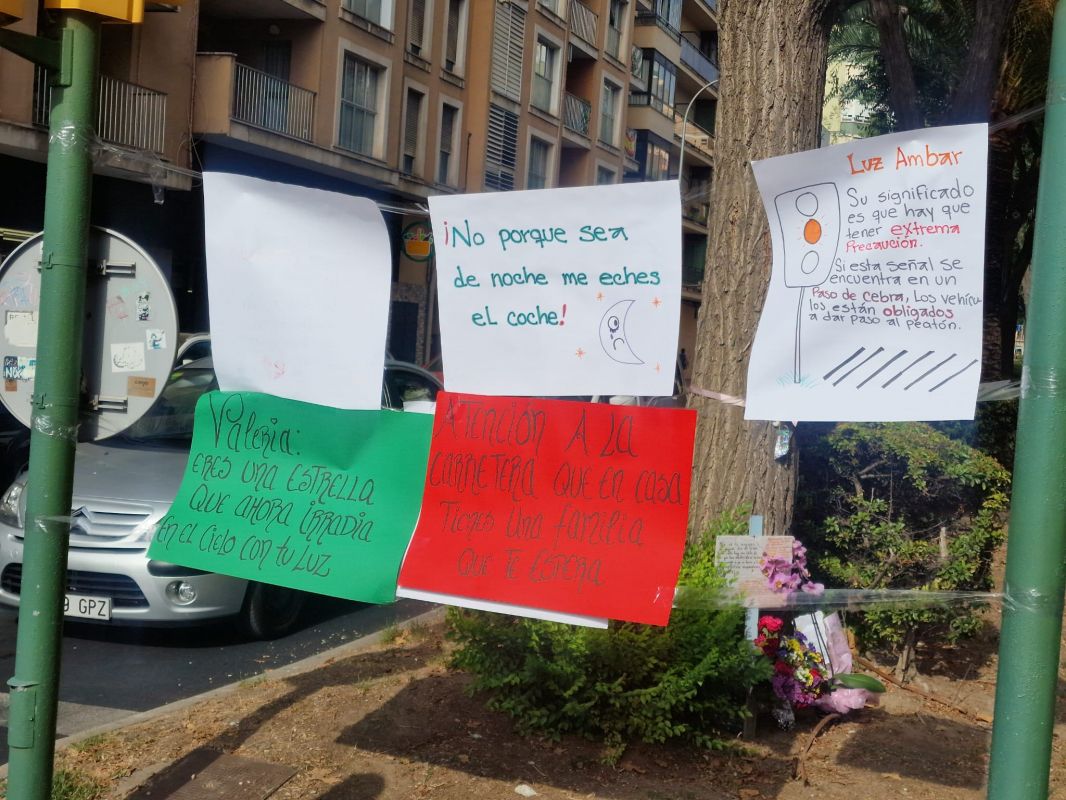 ¡No porque sea
de noche me eches
el coche!
Luz Ambar
Su significado
es que hay que
tener extrema
Precaución.
Si esta señal se
encuentra en un
Paso de cebra, Los vehícu
los están obligados
a dar paso al peatón.
Valeria:
ERES UNA ESTRELLA
QUE AHORA IRRADIA
EN EL CIELO CON TU LUZ
ATENCIÓN A LA
CARRETERA QUE EN CASA
TIENES UNA FAMILIA
QUE TE ESPERA
9 GPZ